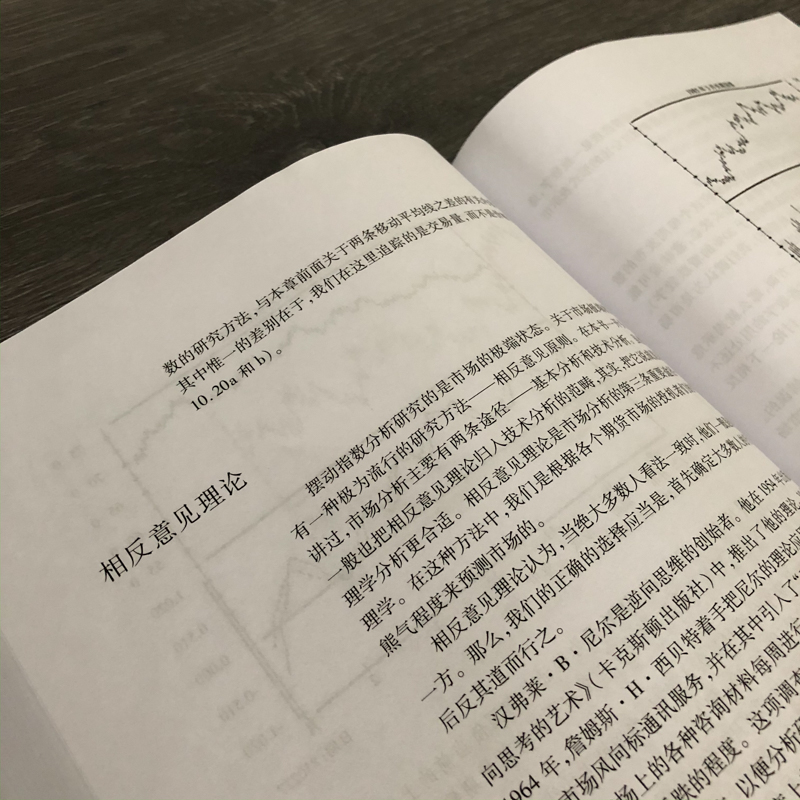 数的研究方法,与本章前面关于两条移动平均线之差的有关
其中惟一的差别在于,我们在这里追踪的是交易量,而不是
10.20a 和 b)。
摆动指数分析研究的是市场的极端状态。关于市场
相反意见理论
有一种极为流行的研究方法——相反意见原则。在本书
讲过,市场分析主要有两条途径——基本分析和技术分析。
一般也把相反意见理论归入技术分析的范畴,其实,把它
理学分析更合适。相反意见理论是市场分析的第三条重要
理学。在这种方法中,我们是根据各个期货市场的投机者
熊气程度来预测市场的。
相反意见理论认为,当绝大多数人看法一致时,他们一般
一方。那么,我们的正确的选择应当是,首先确定大多数人
后反其道而行之。
汉弗莱·B·尼尔是逆向思维的创始者。他在 1954 年
向思考的艺术》(卡克斯顿出版社)中,推出了他的理论
1964 年,詹姆斯·H·西贝特着手把尼尔的理论应
市场风向标通讯服务,并在其中引入了“
场上的各种咨询材料每周进行
跌的程度。这项调查
以便分析